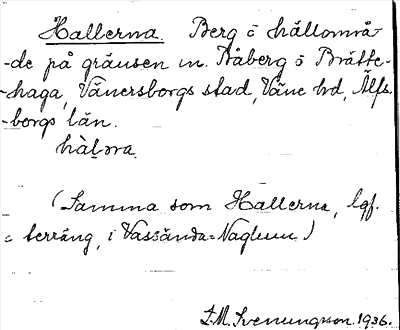 Hallerna. Berg o hällområ-
-de på gränsen m. Blåberg o Brätte-
-haga, Vänersborgs stad, Väne hd, Älfs
-borgs län.
hàlǝra
(Samma som Hallerna, lgf.
o terräng, i Vassända-Naglum)
S.M. Svenungsson. 1936.